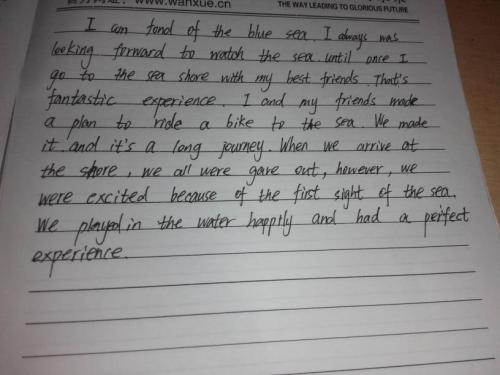 www.wanxue.cn THE WAY LEADING TO GLORIOUS FUTURE
I can fond of the blue sea. I always was
looking forward to watch the sea until once I
go to the sea shore with my best friends. That's
fantastic experience. I and my friends made
a plan to ride a bike to the sea. We made
it and it's a long journey. When we arrive at
the shore, we all were gave out, however, we
were excited because of the first sight of the sea.
We played in the water happily and had a perfect
experience.